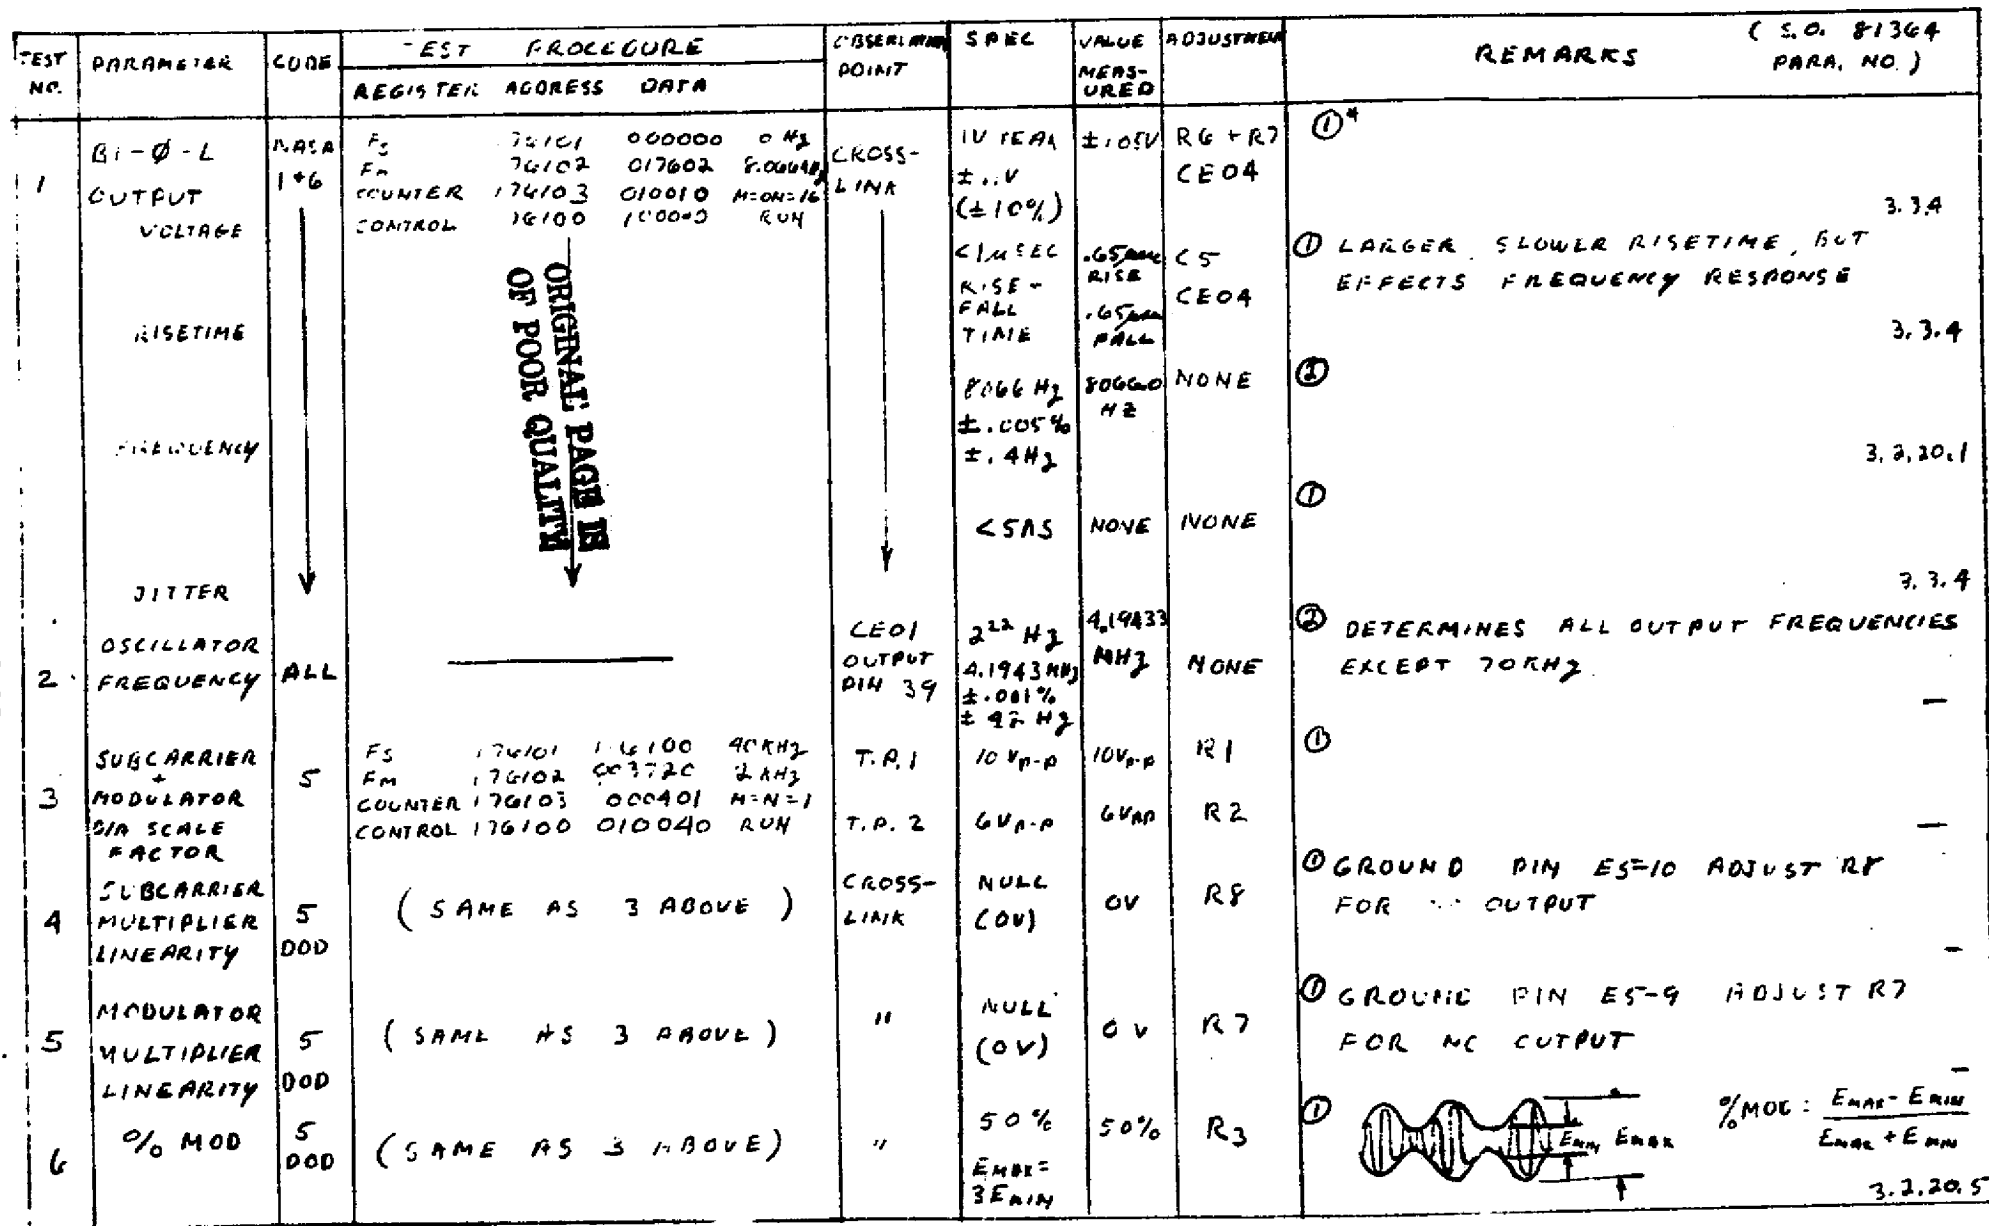 TEST NO.
PARAMETER
CODE
TEST PROCEDURE
REGISTER ADDRESS DATA
OBSERVATION POINT
SPEC
VALUE MEASURED
ADJUSTMENT
REMARKS
( S.O. 81364
PARA. NO. )
1
Bi-Ø-L
OUTPUT
VOLTAGE
NASA
1+6
FS 76101 000000 0 HZ
FM 76102 017602
COUNTER 176103 010010 M=0N=16
CONTROL 76100 RUN
CROSS-
LINK
1V PEAK
(±10%)
±1.05V
R6 + R7
CE04
①*
3.3.4
RISETIME
<1µSEC
RISE-
FALL
TIME
.65µsec
RISE
.65µsec
FALL
C5
CE04
① LARGER SLOWER RISETIME, BUT
EFFECTS FREQUENCY RESPONSE
3.3.4
ORIGINAL PAGE IS
OF POOR QUALITY
FREQUENCY
8066 HZ
±.005%
±.4HZ
8066.0
HZ
NONE
②
3.2.20.1
JITTER
NONE
NONE
①
3.3.4
2
OSCILLATOR
FREQUENCY
ALL
CE01
OUTPUT
PIN 39
2²² HZ
4.1943 MHZ
±.001%
± 42 HZ
4.19433
MHZ
NONE
② DETERMINES ALL OUTPUT FREQUENCIES
EXCEPT 70KHZ
—
3
SUBCARRIER
+
MODULATOR
D/A SCALE
FACTOR
5
FS 176101 40KHZ
FM 176102 003720 2KHZ
COUNTER 176103 000401 M=N=1
CONTROL 176100 010040 RUN
T.P.1
10 Vp-p
10Vp-p
R1
①
T.P. 2
6Vp-p
6Vpp
R2
—
4
SUBCARRIER
MULTIPLIER
LINEARITY
5
DOD
( SAME AS 3 ABOVE )
CROSS-
LINK
NULL
(0V)
0V
R8
① GROUND PIN E5-10 ADJUST R8
FOR OUTPUT
—
5
MODULATOR
MULTIPLIER
LINEARITY
5
DOD
( SAME AS 3 ABOVE )
"
NULL
(0V)
0 V
R7
① GROUND PIN E5-9 ADJUST R7
FOR NO OUTPUT
—
6
% MOD
5
DOD
( SAME AS 3 ABOVE)
"
50%
EMAX=
3EMIN
50%
R3
①
EMIN EMAX
%MOD = EMAX - EMIN
EMAX + EMIN
3.2.20.5